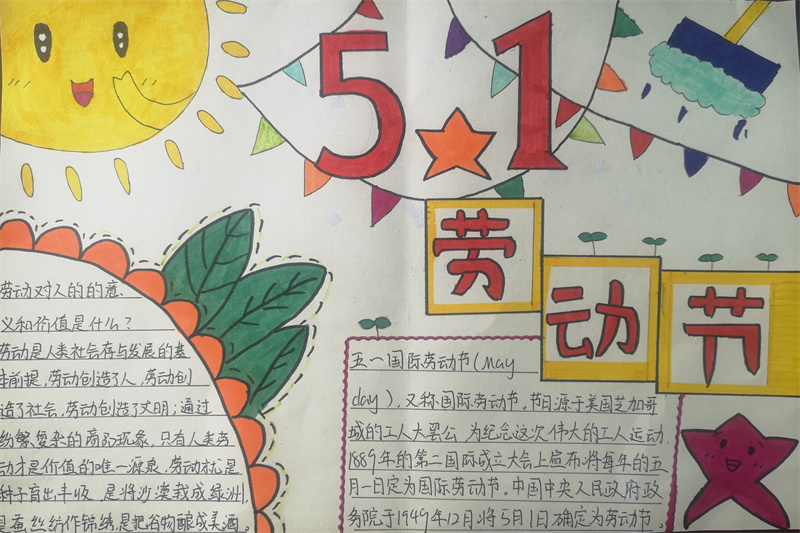 5.1
劳动节
劳动对人的的意
义和价值是什么？
劳动是人类社会存与发展的基
前提，劳动创造了人，劳动创
造了社会，劳动创造了文明；通过
纷繁复杂的商品现象，只有人类劳
动才是价值的唯一源泉，劳动就是
种子育出丰收，是将沙漠栽成绿洲，
是蚕丝纺作锦绣，是把谷物酿成美酒。
五一国际劳动节（May
day），又称国际劳动节。节日源于美国芝加哥
城的工人大罢公，为纪念这次伟大的工人运动，
1889年的第二国际成立大会上宣布将每年的五
月一日定为国际劳动节。中国中央人民政府政
务院于1949年12月将5月1日确定为劳动节。